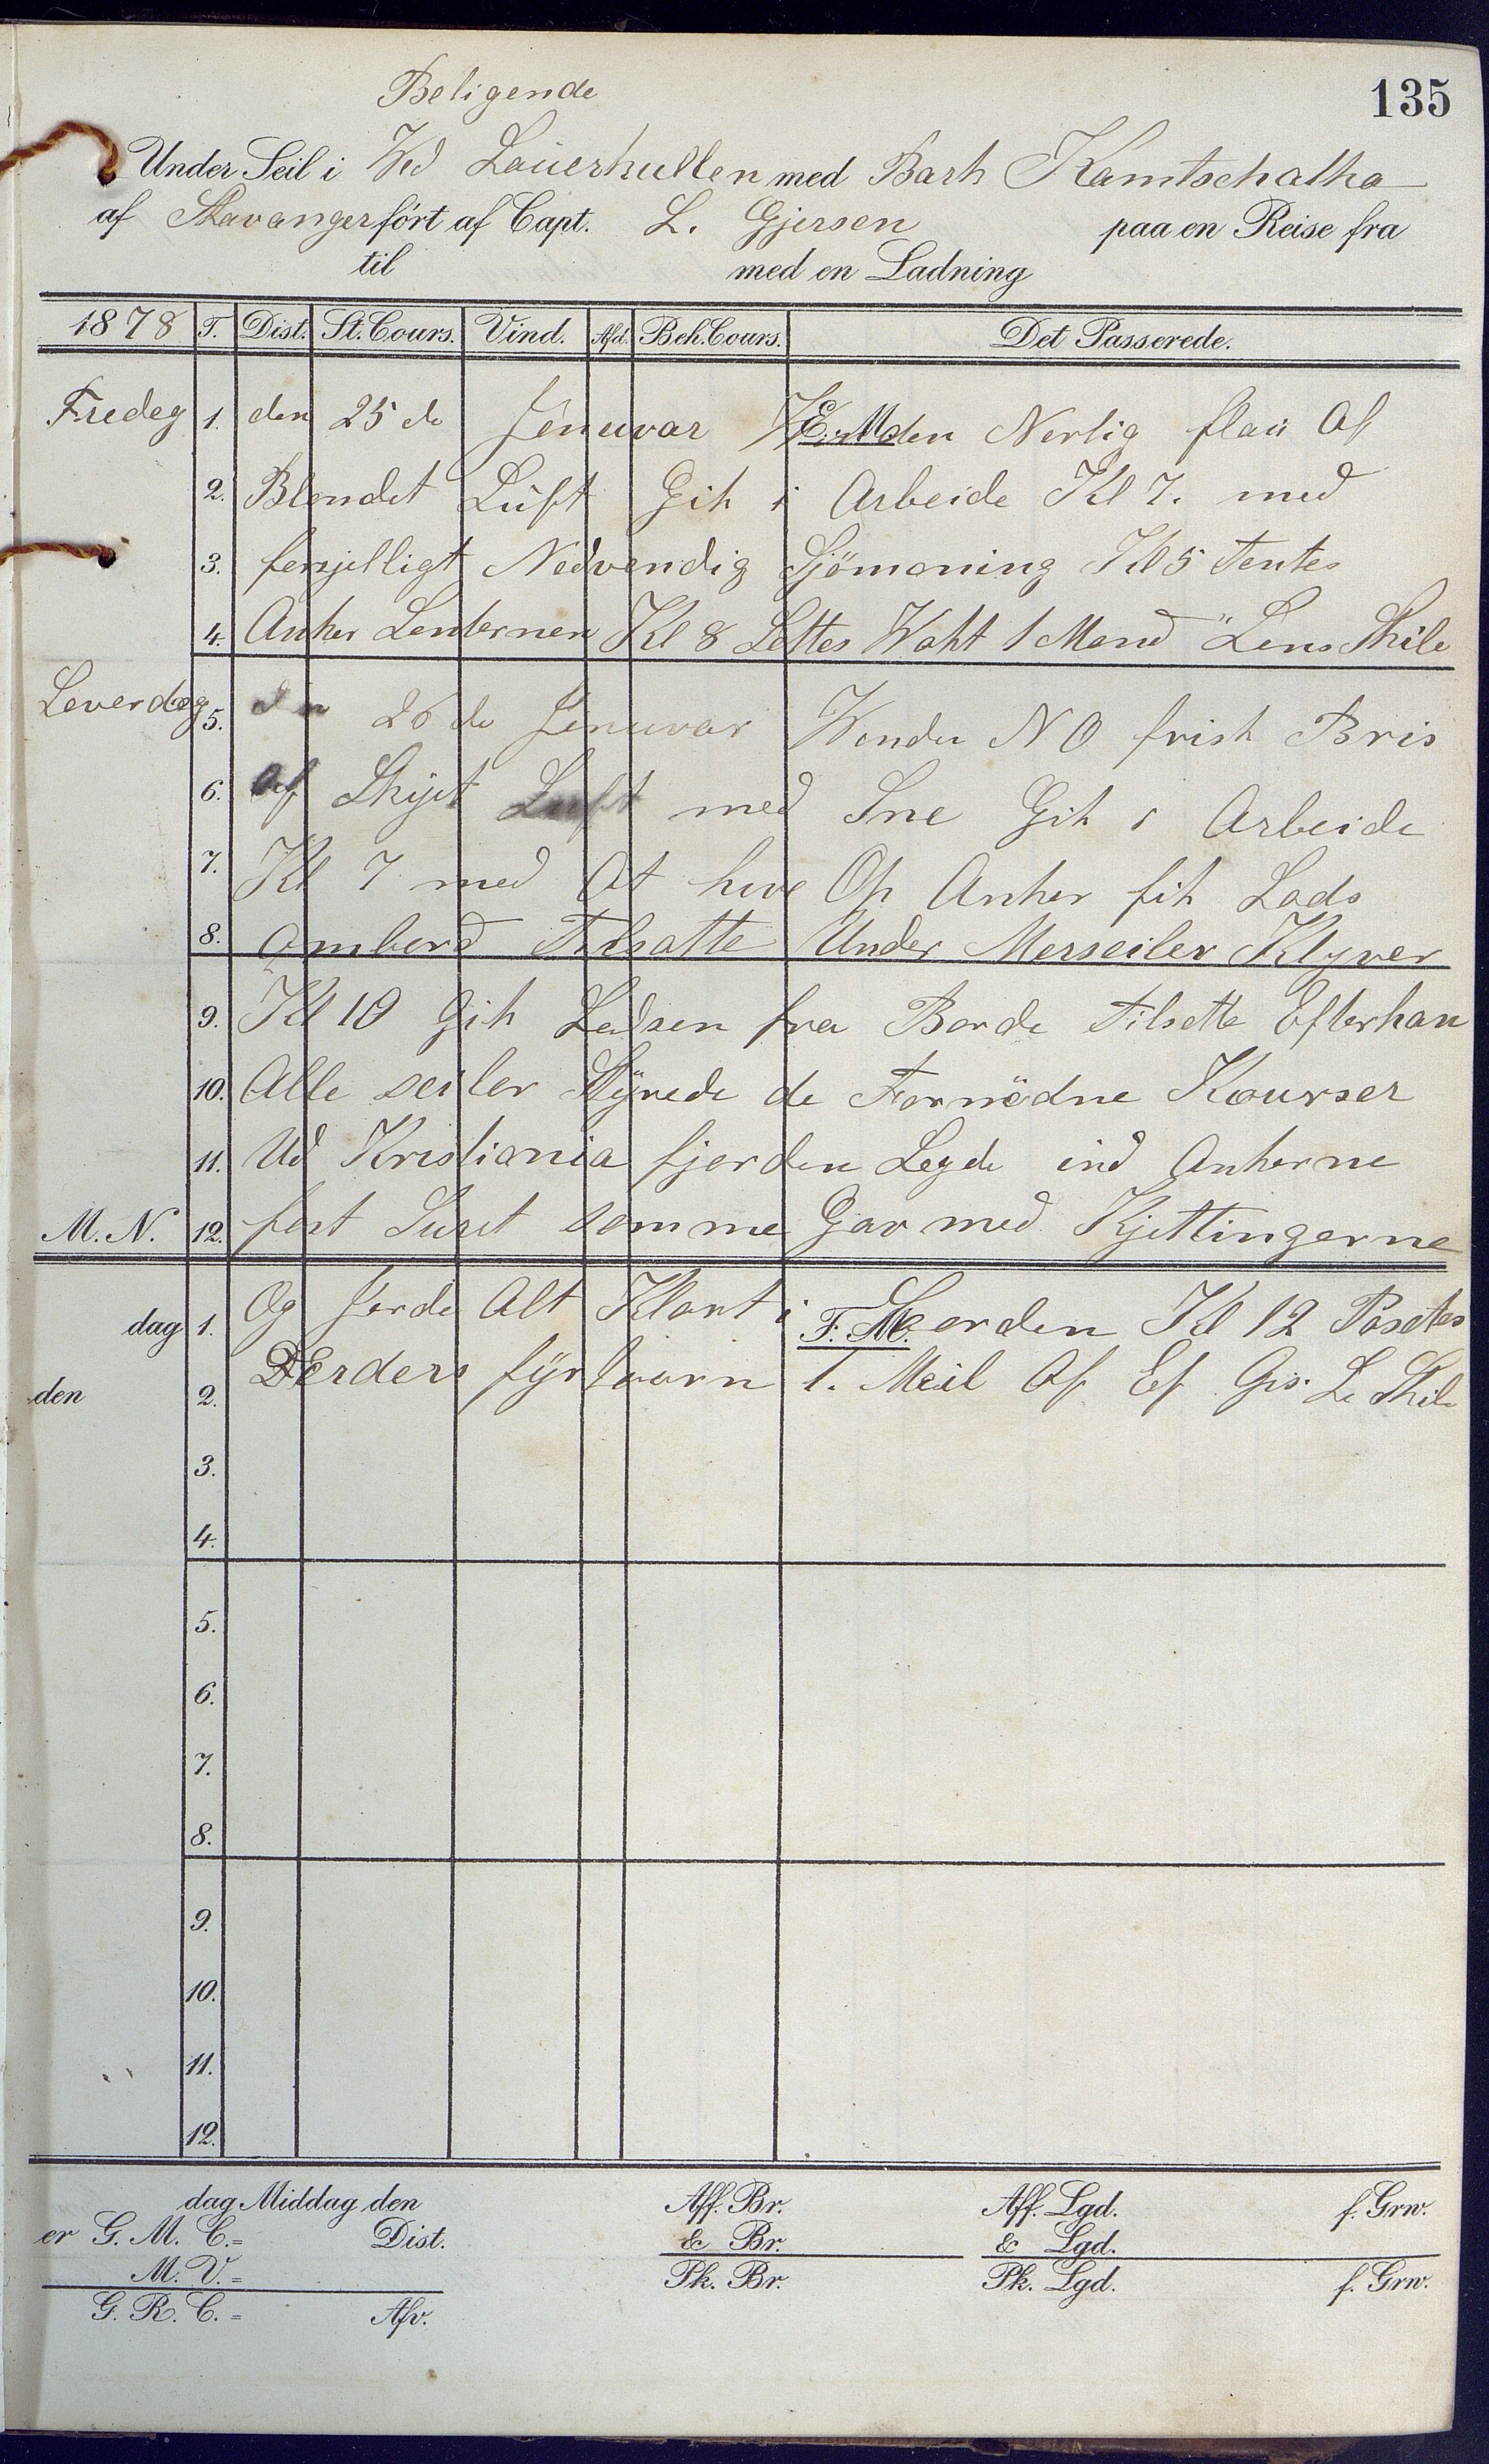 Beligende
135
Under Seil i Ved Laüerkullen med Bark Kamtschatka
af Stavanger fört af Capt. L. Gjersen paa en Reise fra
til med en Ladning
1878 T. Dist. St. Cours. Vind. Afd. Beh. Cours. Det Passerede.
Fredag 1. den 25 de Januvar E. M. Nerlig flaü Af
2. Blendet Lüft Gik i Arbeide Kl 7. med
3. forsjelligt Nødvendig Sjömaning Kl 5 Tentes
4. Anker Lanternen Kl 8 Settes Wakt 1 Mand Lens Skib
Löverdag 5. den 26 de Januvar Winden N O frisk Bris
6. Af Skyet Luft med Sne Gik i Arbeide
7. Kl 7 med At hive Op Anker fik Lods
8. ombord Tilsatte Under Merseiler Klyver
9. Kl 10 Gik Lodsen fra Borde Tilsette Efterhan
10. Alle seiler Styrede de Fornödne Kourser
11. Ud Kristiania fjorden Legde ind Ankerne
M. N. 12. fast Suret somme Gav med Kjettingerne
dag 1. Og Jorde Alt Klart i F. M. Kl 12 Pasetes
den 2. Færders fyrtaarn 1. Meil Af Ef Gis. L. Skib
3.
4.
5.
6.
7.
8.
9.
10.
11.
12.
dag Middag den Aff. Br. Aff. Lgd. f. Grw.
er G. M. C.= Dist. & Br. & Lgd.
M. V.= Pk. Br. Pk. Lgd. f. Grw.
G. R. C.= Afv.